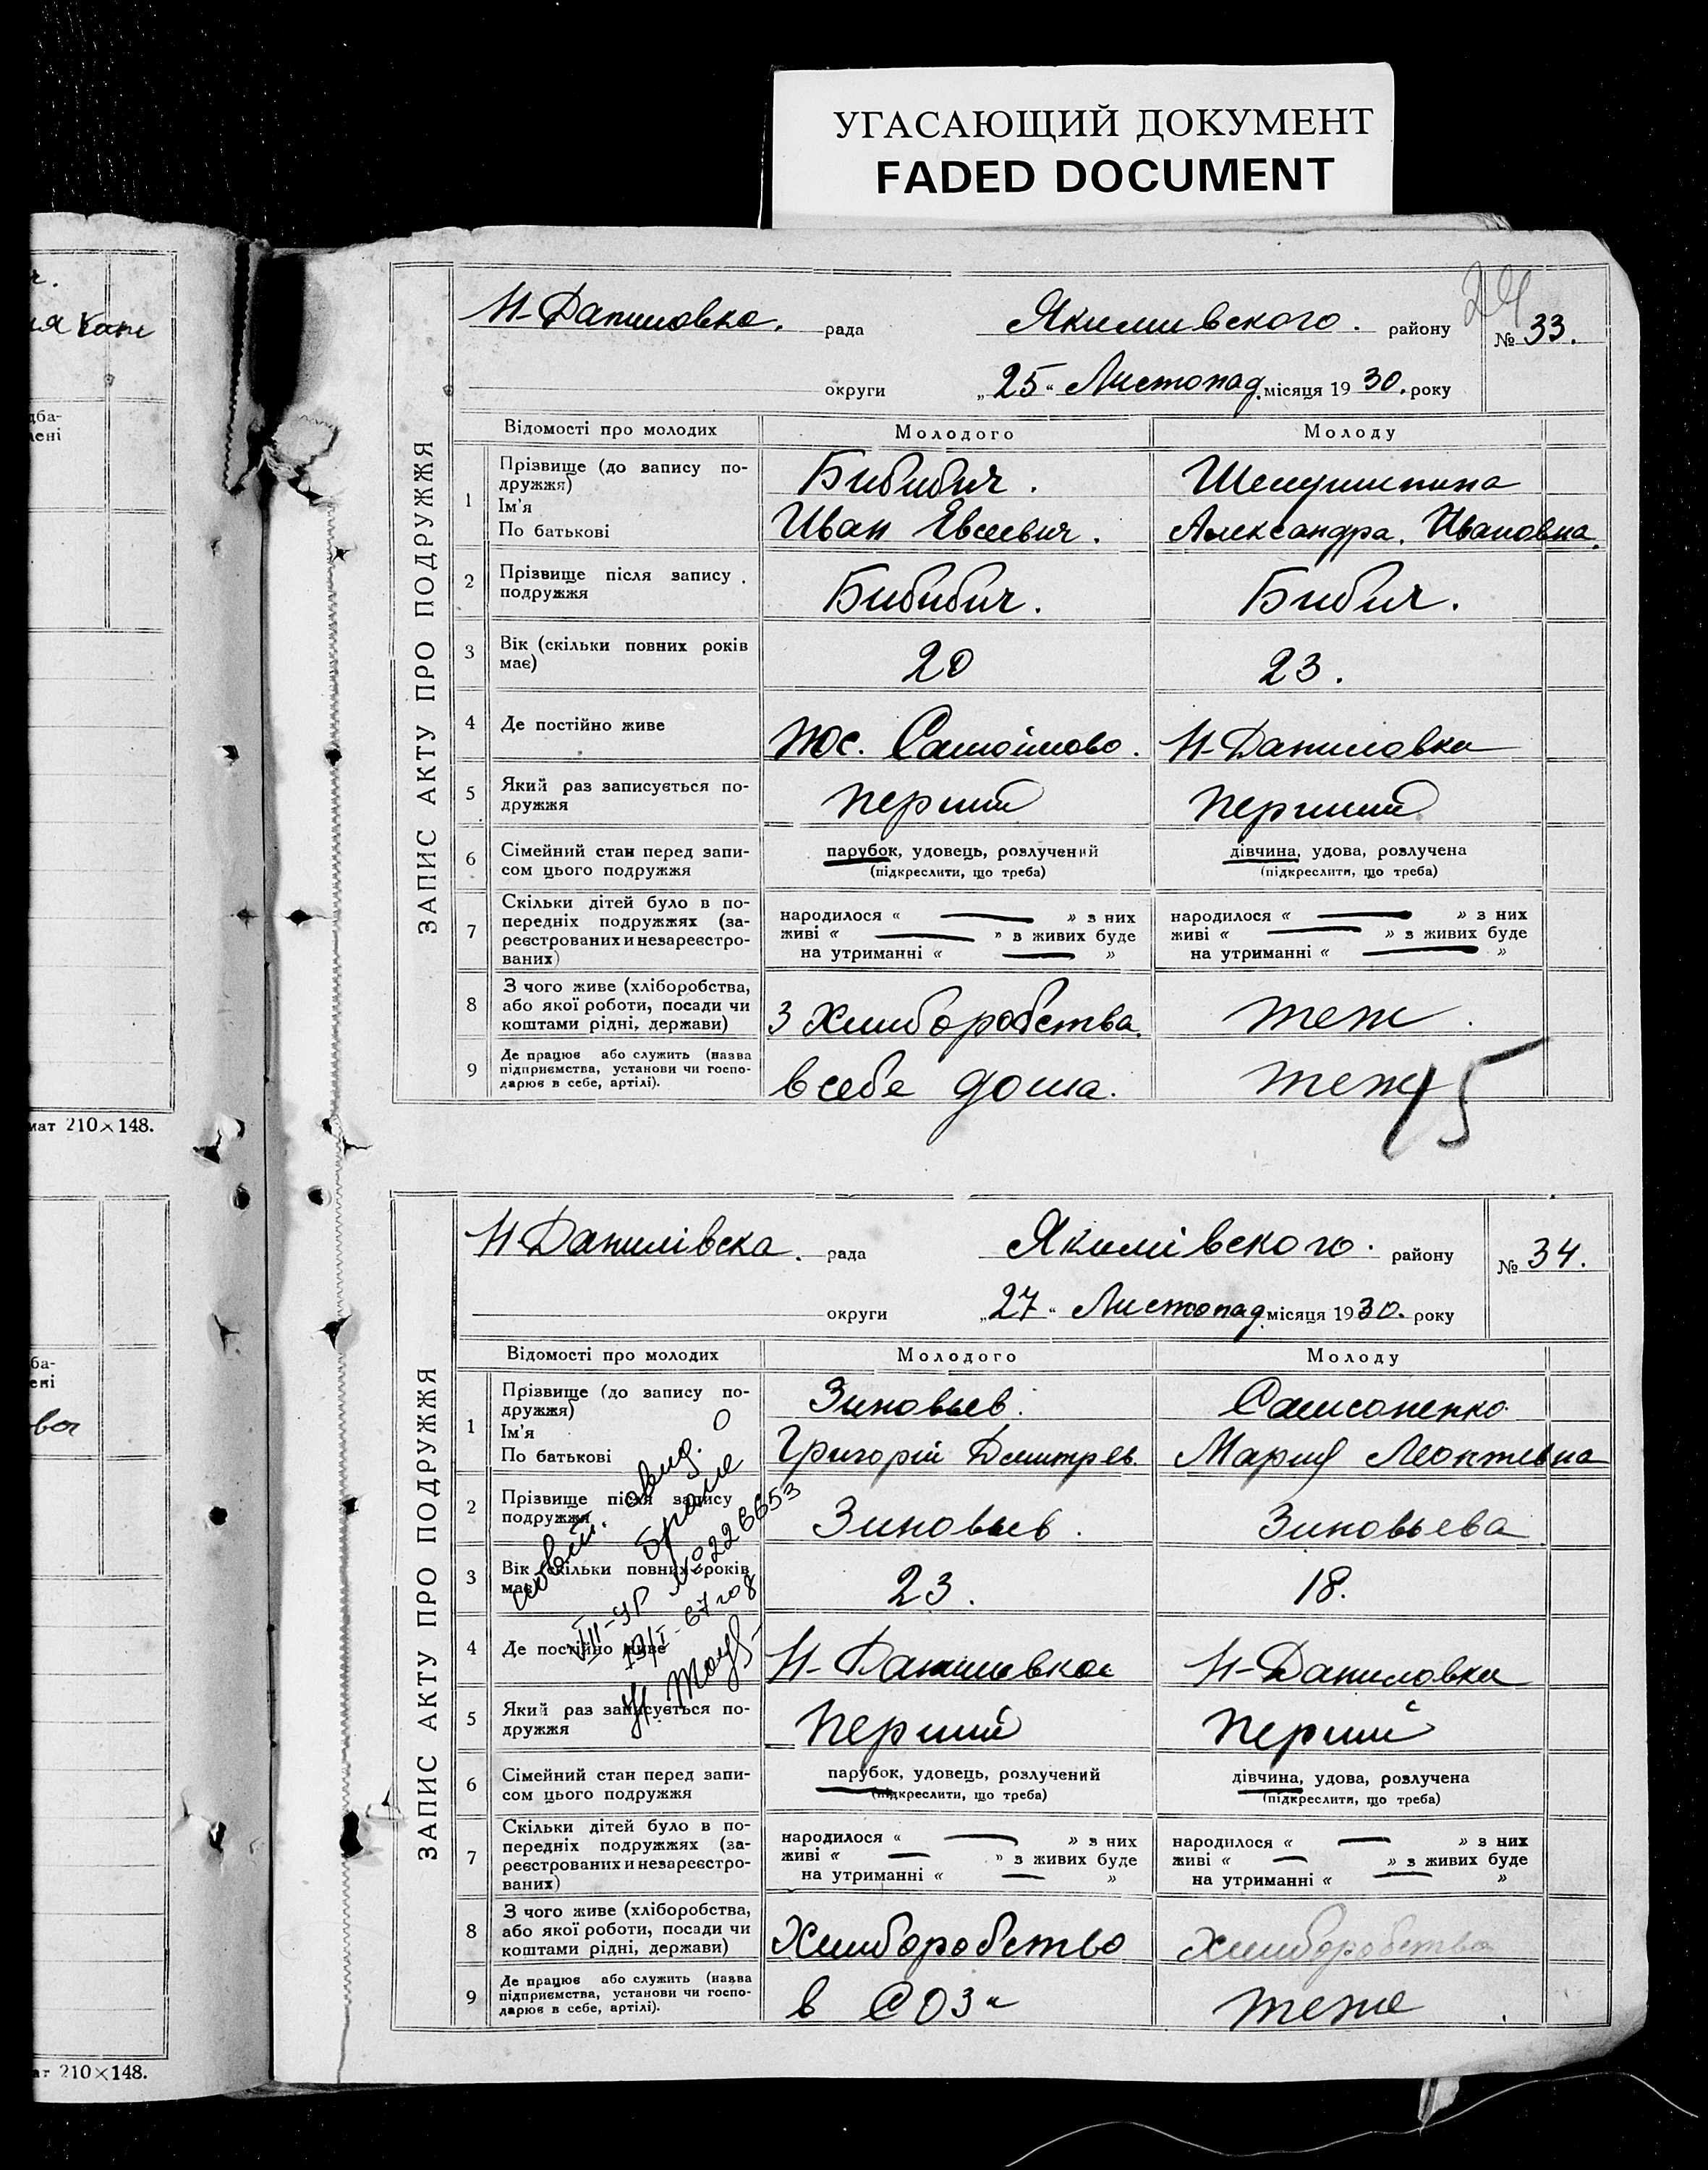 УГАСАЮЩИЙ ДОКУМЕНТ
FADED DOCUMENT
24
ЗАПИС АКТУ ПРО ПОДРУЖЖЯ
Н-Даниловка. рада Якимивского. району № 33.
округи „25“ Листопад. місяця 1930. року
Відомості про молодих Молодого Молоду
1 Прізвище (до запису по-
дружжя) Бибибич. 
Ім'я
По батькові Иван Евсеевич. Александра. Ивановна.
2 Прізвище після запису
подружжя Бибибич. Бибич.
3 Вік (скільки повних років
має) 20 23.
4 Де постійно живе Н-Даниловка
5 Який раз записується по-
дружжя перший перший
6 Сімейний стан перед запи-
сом цього подружжя
парубок, удовець, розлучений дівчина, удова, розлучена
(підкреслити, що треба) (підкреслити, що треба)
7 Скільки дітей було в по-
передніх подружжях (за-
реєстрованих и незареєстро-
ваних)
народилося « — » з них народилося « — » з них
живі « — » з живих буде живі « — » з живих буде
на утриманні « — » на утриманні « — »
8 З чого живе (хліборобства,
або якої роботи, посади чи
коштами рідні, держави) З Хлиборобства. теж.
9 Де працює або служить (назва
підприємства, установи чи госпо-
дарює в себе, артілі). в себе дома. теж
15
ЗАПИС АКТУ ПРО ПОДРУЖЖЯ
Н-Данилівска. рада Якимівского. району № 34.
округи „27“ Листопад. місяця 1930. року
Відомості про молодих Молодого Молоду
1 Прізвище (до запису по-
дружжя) Зиновьев. Самсоненко
Ім'я
По батькові Григорій Дмитрев. Мария Леонтевна
2 Прізвище після запису
подружжя Зиновьев. Зиновьева
3 Вік (скільки повних років
має) 23. 18.
4 Де постійно живе Н-Даниловка Н-Даниловка
5 Який раз записується по-
дружжя Перший перший
6 Сімейний стан перед запи-
сом цього подружжя
парубок, удовець, розлучений дівчина, удова, розлучена
(підкреслити, що треба) (підкреслити, що треба)
7 Скільки дітей було в по-
передніх подружжях (за-
реєстрованих и незареєстро-
ваних)
народилося « — » з них народилося « — » з них
живі « — » з живих буде живі « — » з живих буде
на утриманні « — » на утриманні « — »
8 З чого живе (хліборобства,
або якої роботи, посади чи
коштами рідні, держави) Хлиборобство Хлиборобство
9 Де працює або служить (назва
підприємства, установи чи госпо-
дарює в себе, артілі). в СОЗ“ теже
о
браке
VIII-УР №226653
19/I-67 год
мат 210×148.
210×148.